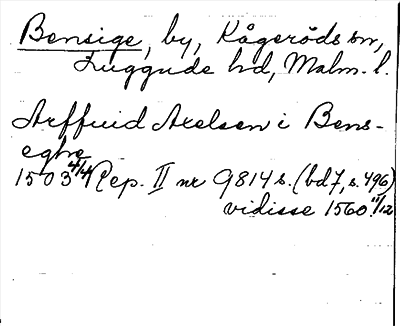 Bensige, by, Kågeröds sn,
Luggude hd, Malm. l.
Arffuid Axelsen i Bens-
eghe
1503 4/4 Rep. II nr 9814 s. (bd 7, s. 496)
vidisse 1560 11/12